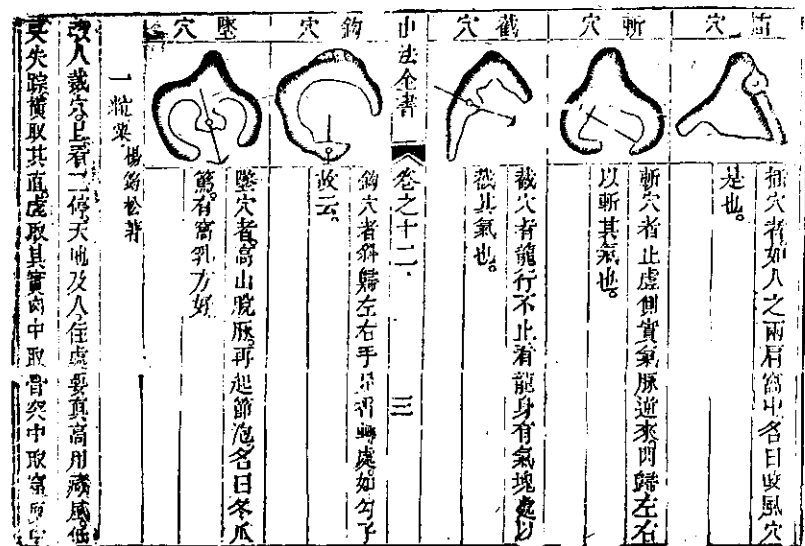 穴
插穴者如人之兩肩窩中名曰吸風穴
是也。
斬穴
斬穴者止虛側實氣脉逆來閃歸左右
以斬其氣也。
截穴
截穴者龍行不止看龍身有氣塊處以
截其氣也。
山法全書
卷之十二
三
鈎穴
鈎穴者斜歸左右手 轉處如勾子
故云。
墜穴
墜穴者高山脫脉再起節泡名曰冬瓜
有窩乳方好
一粒粟 楊筠松著
人裁穴 看三停天地及人住處要真高用藏風低
失踪橫取其直虛取其實肉中取骨突中取窩